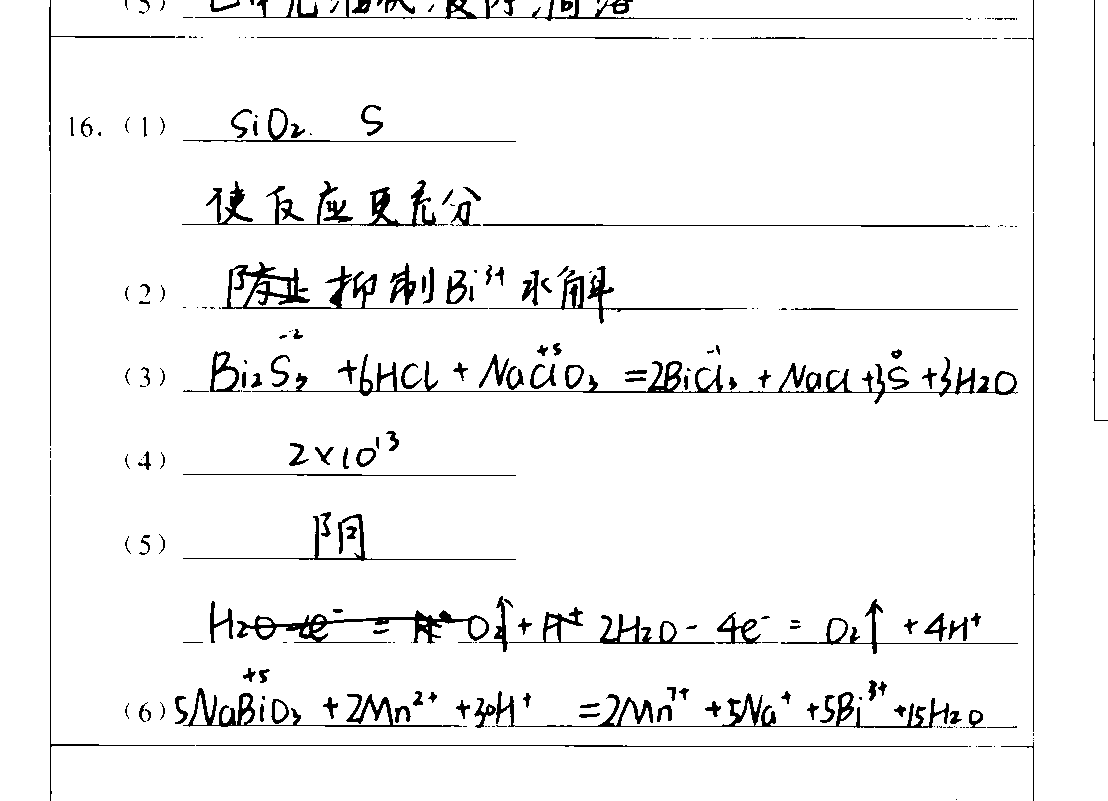 16. (1) SiO₂ S
使反应更充分
(2) 抑制Bi³⁺水解
(3) Bi₂S₃ + 6HCl + NaClO₃ = 2BiCl₃ + NaCl + 3S + 3H₂O
-2 +5 -1 0
(4) 2×10¹³
(5) 阴
2H₂O - 4e⁻ = O₂↑ + 4H⁺
+5
(6) 5NaBiO₃ + 2Mn²⁺ + 30H⁺ = 2Mn⁷⁺ + 5Na⁺ + 5Bi³⁺ + 15H₂O